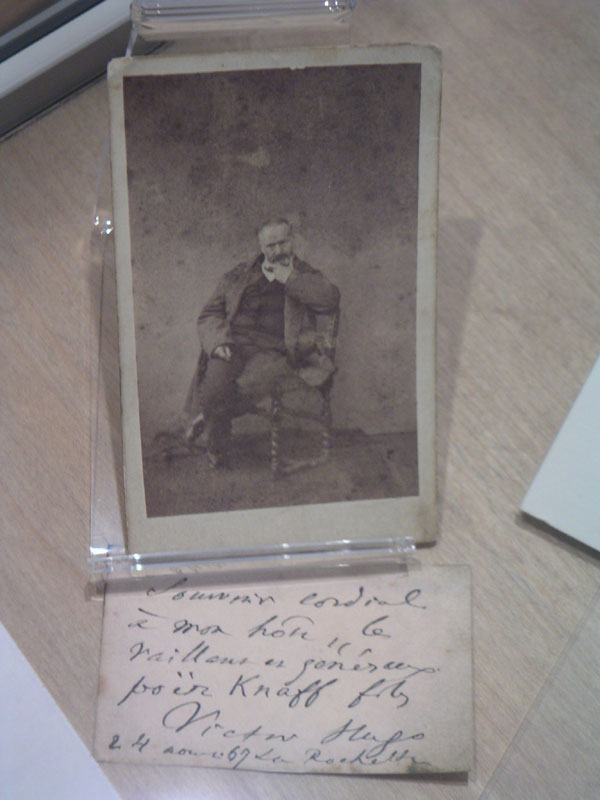 Souvenir cordial
à mon hôte, le
vaillant et généreux
poëte Knaff fils
Victor Hugo
24 aout 67 La Rochette